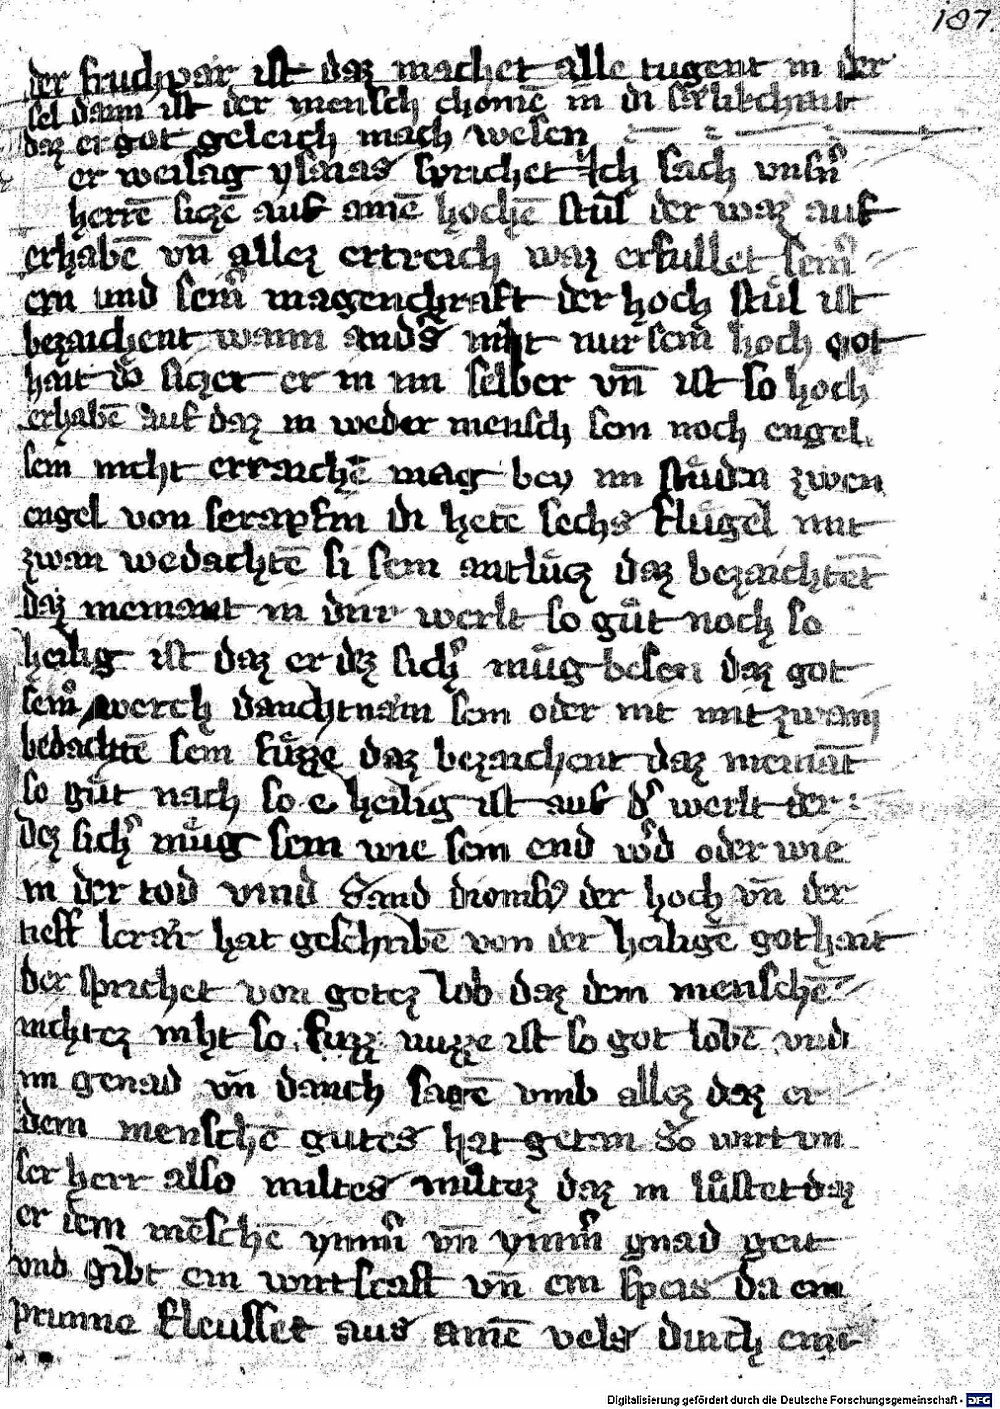 187.
der fruchpar ist daz machet alle tugent in der
sel dann ist der mensch chomē in di
daz er got geleich mach wesen
er weisag ysaias sprichet Ich sach vnsn̄
herrē siczē auf ainē hochē stůl der waz auf
erhabē vn̄ allez ertreich waz erfullet seinˢ
ern und seinˢ magenchraft der hoch stůl ist
bezaichent wann andˢs niht nur sein hoch got
hait do siczet er in im selber vn̄ ist so hoch
erhabē auf daz in weder mensch sein noch engel
sein nicht erraichē mag bey im stůden zwen
engel von seraphin di hetē sechs flůgel mit
zwain wedachtē si sein antlůcz daz bezaichtēt
daz niemant in dirr werlt so gůt noch so
heilig ist daz er dez sichˢ můg besen daz got
seinˢ werch danchnam sein oder nit mit zwain
bedachtē sein fůzze daz bezaichent daz niemāt
so gůt nach so heilig ist auf dˢ werlt der
dez sichˢ můg sein wie sein end wˢd oder wie
in der tod vind Sand dionisy der hoch vn̄ der
tieff lerar hat geschribē von der heiligē gothait
der sprichet von gotez lob daz dem menschē
nichtez niht so fuzz nuzze ist so got lobē vnd
im genad vn̄ danch sagē vmb allez daz er
dem menschē gutes hat getan So wirt vn
ser herr also miltes miltez daz in lůstet daz
er dem mēschē ymmˢ vn̄ ymmˢ gnad geit
vnd gibt ein wirtscaft vn̄ ein speis da ein
prunne fleusset aus ainē vels durch
Digitalisierung gefördert durch die Deutsche Forschungsgemeinschaft - DFG